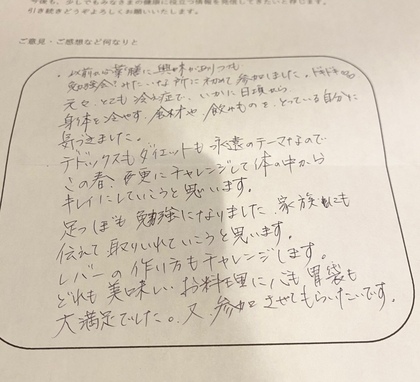 今後も、少しでもみなさまの健康に役立つ情報を発信していきたいと存じます。
引き続きどうぞよろしくお願いいたします。
ご意見・ご感想など何なりと
・以前から薬膳に興味がありつつも
勉強会みたいな所に初めて参加しました。
元々、とても冷え症で、いかに日頃から
身体を冷やす食材や飲みものを、とっている自分に
気づきました。
デトックスもダイエットも永遠のテーマなので
この春、今更にチャレンジして体の中から
キレイにしていこうと思います。
足つぼも勉強になりました。家族にも
伝えて取りいれていこうと思います。
レバーの作り方もチャレンジします。
どれも美味しいお料理に心も胃袋も
大満足でした。又、参加させてもらいたいです。